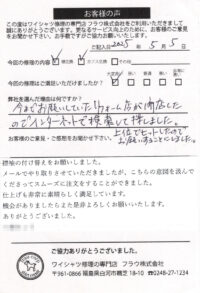 お客様の声
この度はワイシャツ修理の専門店 フラウ株式会社をご利用いただきまして
誠にありがとうございます。更なるサービス向上のために、お客様のご意見
をお聞かせ下さい。お手数ですがご協力お願いいたします。
ご記入日 2025年 5月 5日
今回の修理の内容 衿修理 カフス修理 その他
今回の修理はご満足いただけましたか? 大変良い 良い 普通 悪い
弊社を選んだ理由は何ですか?
今までお願いしていたリフォーム店が閉店した
のでインターネットで検索して探しました。
上位でヒットしたので
お願いすることにしました。
お客様のご意見・ご感想をお聞かせ下さい。
襟袖の付け替えをお願いしました。
メールでやり取りをさせていただきましたが、こちらの意図を汲んで
くださってスムーズに注文をすることができました。
仕上げも非常に素晴らしく満足しています。
機会がありましたらまた是非よろしくお願いいたします。
ありがとうございました。
ご協力ありがとうございました。
ワイシャツ修理の専門店 フラウ株式会社
〒961-0866 福島県白河市鞴芝 18-10 ☎0248-27-1234